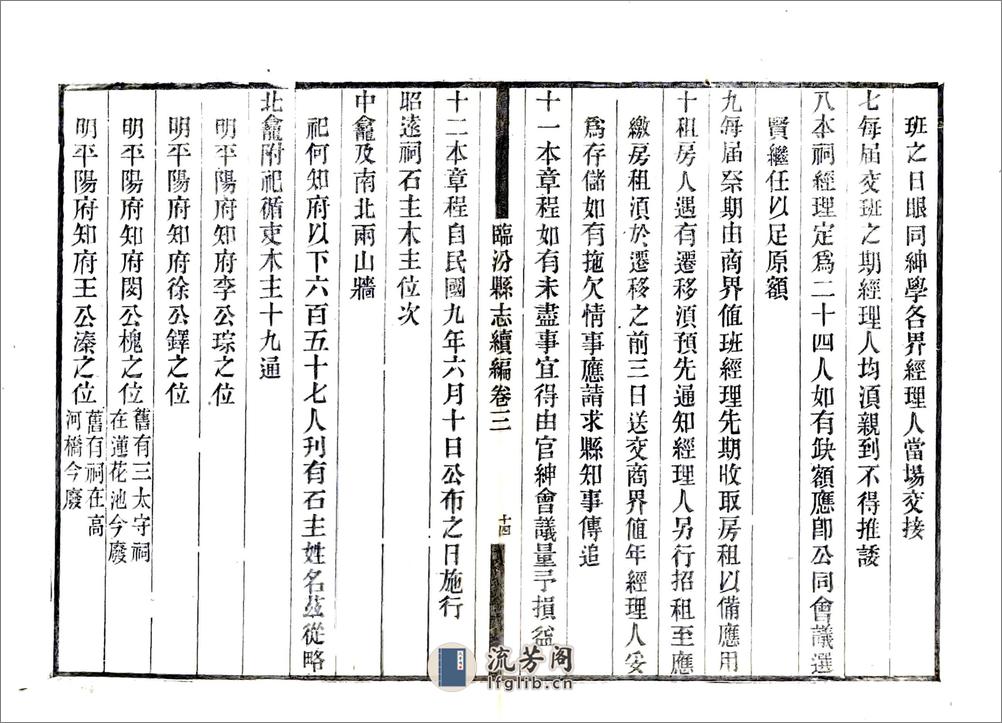 班之日眼同紳學各界經理人當場交接
七每届交班之期經理人均湏親到不得推諉
八本祠經理定爲二十四人如有缺額應卽公同會議選
賢繼任以足原額
九每届祭期由商界值班經理先期收取房租以備應用
十租房人遇有遷移湏預先通知經理人另行招租至應
繳房租湏於遷移之前三日送交商界值年經理人妥
爲存儲如有拖欠情事應請求縣知事傳追
十一本章程如有未盡事宜得由官紳會議量予損益
臨汾縣志續編卷三
十四
十二本章程自民國九年六月十日公布之日施行
昭遠祠石主木主位次
中龕及南北兩山牆
祀何知府以下六百五十七人刊有石主姓名茲從略
北龕附祀循吏木主十九通
明平陽府知府李公琮之位
明平陽府知府徐公鐸之位
明平陽府知府閔公槐之位
舊有三太守祠
在蓮花池今廢
明平陽府知府王公溱之位
舊有祠在高
河橋今廢
流芳阁
lfglib.cn